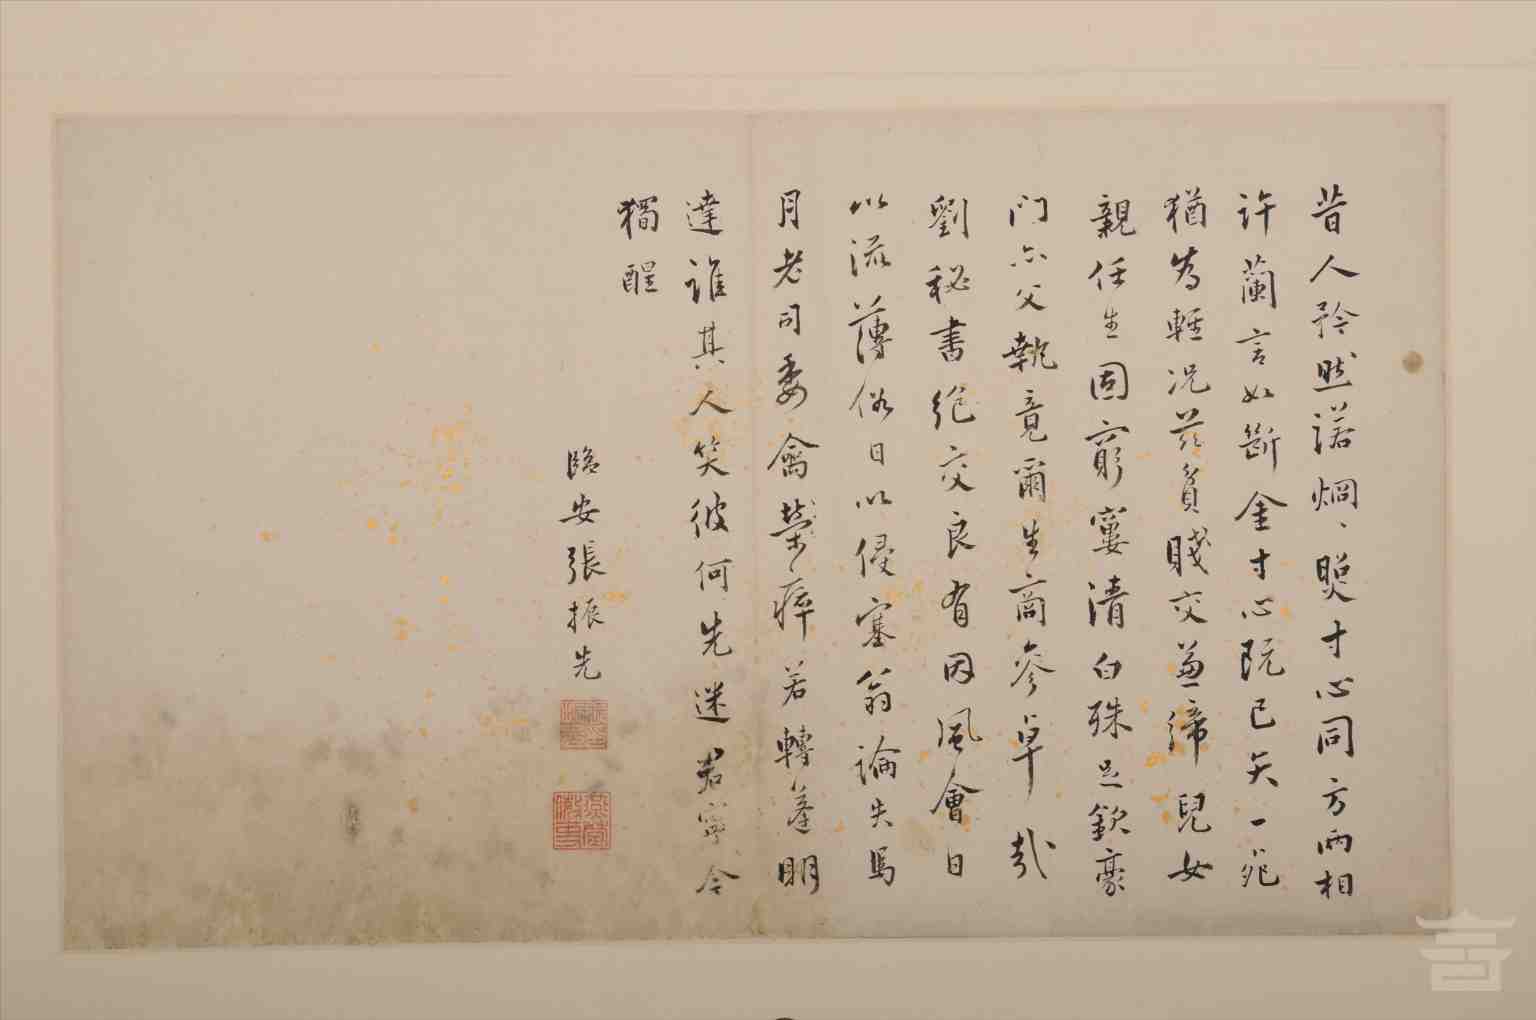 昔人矜然諾炯、照寸心同方兩相
許蘭言如斷金寸心既已矢一死
猶為輕況茲貧賤交並締兒女
親任生固窮寠清白殊足欽豪
門亦父執竟爾生商參卓哉
劉秘書絕交良有因風會日
以流薄俗日以侵塞翁論失馬
月老司委禽榮瘁若轉蓬明
達誰其人笑彼何先迷君寧今
獨醒
臨安張振先